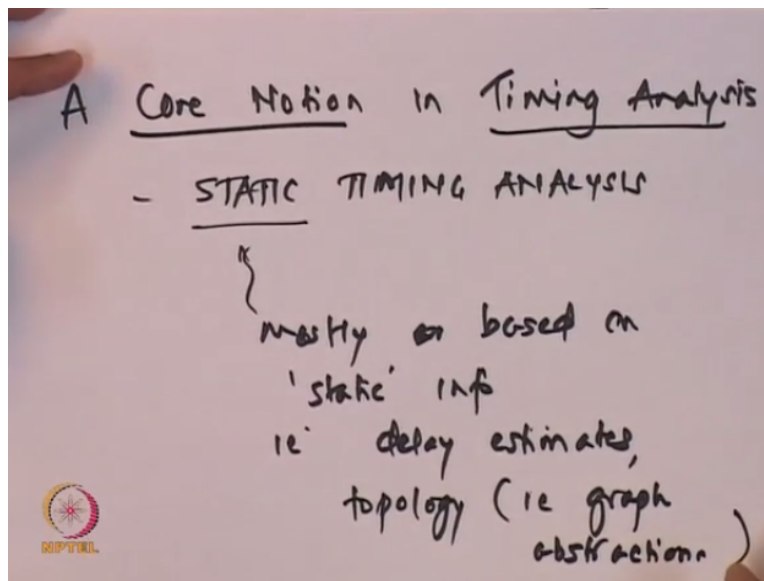 A Core Notion in Timing Analysis
- STATIC TIMING ANALYSIS
mostly based on
'static' info
ie delay estimates,
topology (ie graph
abstraction)
NPTEL